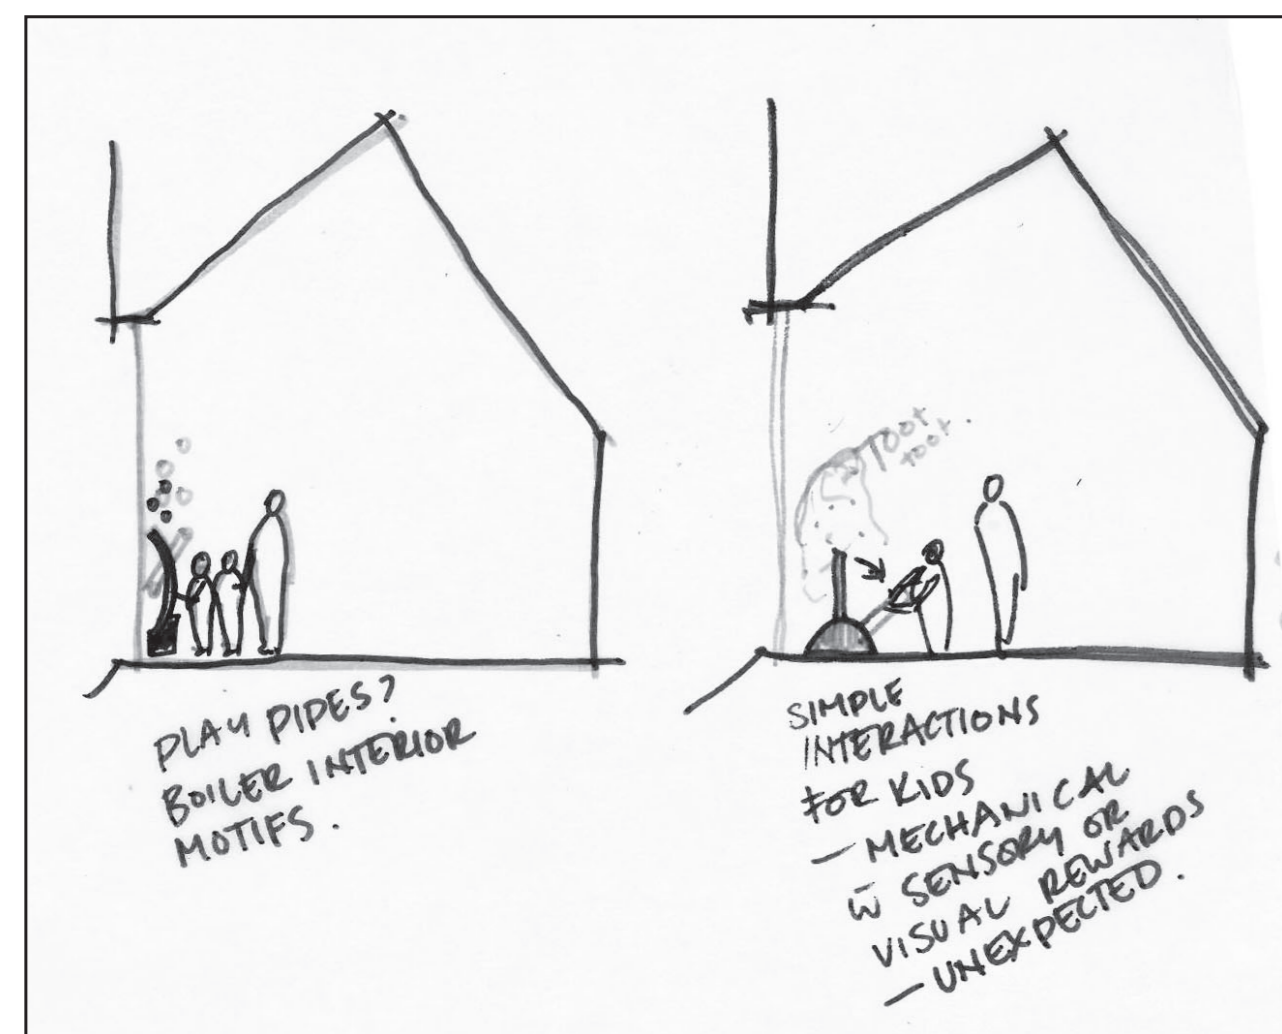 PLAY PIPES?
BOILER INTERIOR
MOTIFS.
toot
toot.
SIMPLE
INTERACTIONS
FOR KIDS
— MECHANICAL
w̄ SENSORY OR
VISUAL REWARDS
— UNEXPECTED.